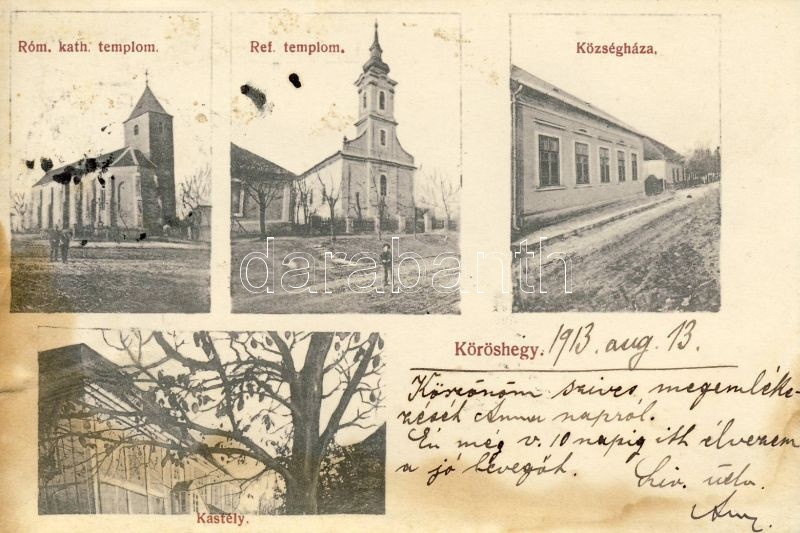 Róm. kath. templom.
Ref. templom.
Községháza.
darabanth
Kastély.
Köröshegy. 1913. aug. 13.
Köszönöm szives megemléke-
zését Anna napról.
Én még v. 10 napig itt élvezem
a jó levegőt.
Sziv. üdv.